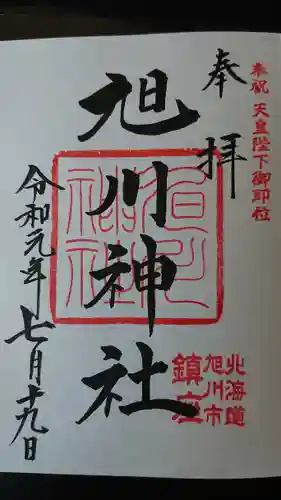 奉祝 天皇陛下御即位
奉拝
旭川神社
北海道
旭川市
鎮座
令和元年七月十九日